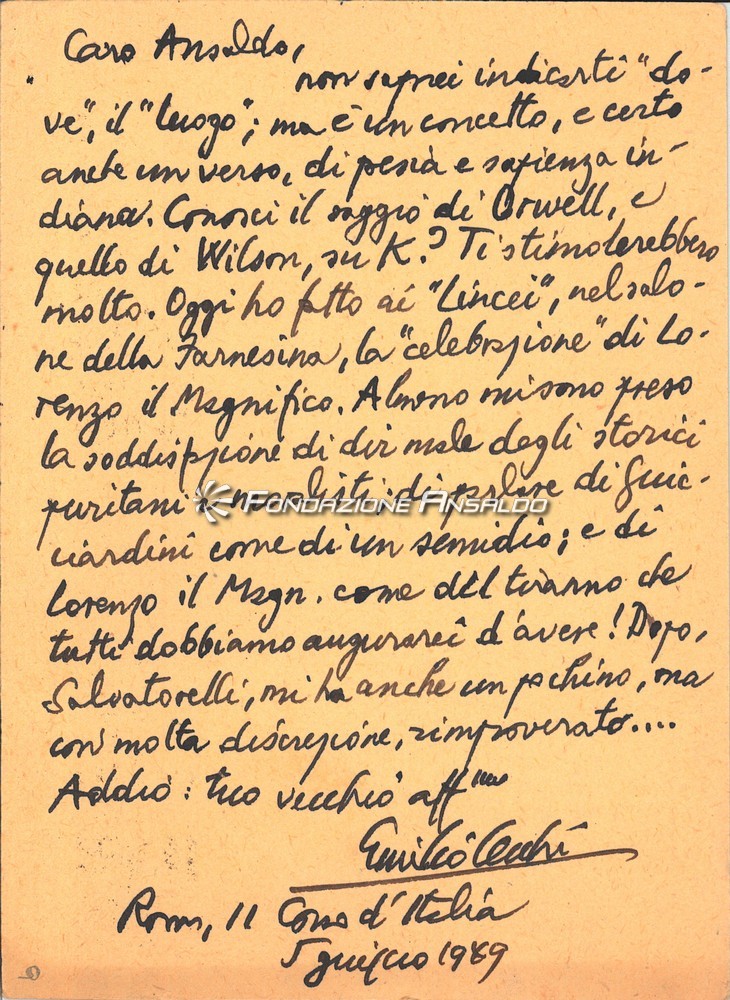 Caro Ansaldo,
non saprei indicarti "do-
ve", il "luogo"; ma è un concetto, e certo
anche un verso, di poesia e sapienza in-
diana. Conosci il saggio di Orwell, e
quello di Wilson, su K.? Ti stimolerebbero
molto. Oggi ho fatto ai "Lincei", nel salo-
ne della Farnesina, la "celebrazione" di Lo-
renzo il Magnifico. Almeno mi sono preso
la soddisfazione di dir male degli storici
puritani e moralisti: di parlare di Guic-
ciardini come di un semidio; e di
Lorenzo il Magn. come del tiranno che
tutti dobbiamo augurarci d'avere! Dopo,
Salvatorelli, mi ha anche un pochino, ma
con molta discrezione, rimproverato....
Addio: tuo vecchio aff
Emilio Cecchi
Roma, 11 Corso d'Italia
5 giugno 1949
FONDAZIONE ANSALDO